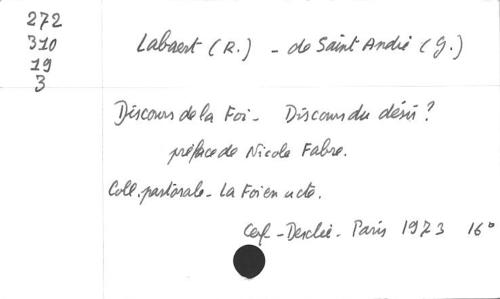 272
310
19
3
Labaert (R.) - de Saint André (G.)
Discours de la Foi - Discours du désir ?
préface de Nicole Fabre.
Coll. pastorale - La Foi en acte.
Cerf - Desclée - Paris 1973 16°